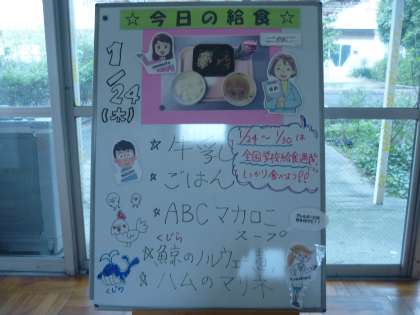 ☆今日の給食☆
1/24
(木)
1/24～1/30は
全国学校給食週間
しっかり食べよう!!
☆牛乳
☆ごはん
☆ABCマカロニ
スープ
くじら
☆鯨のノルウェー風
☆ハムのマリネ
くじら